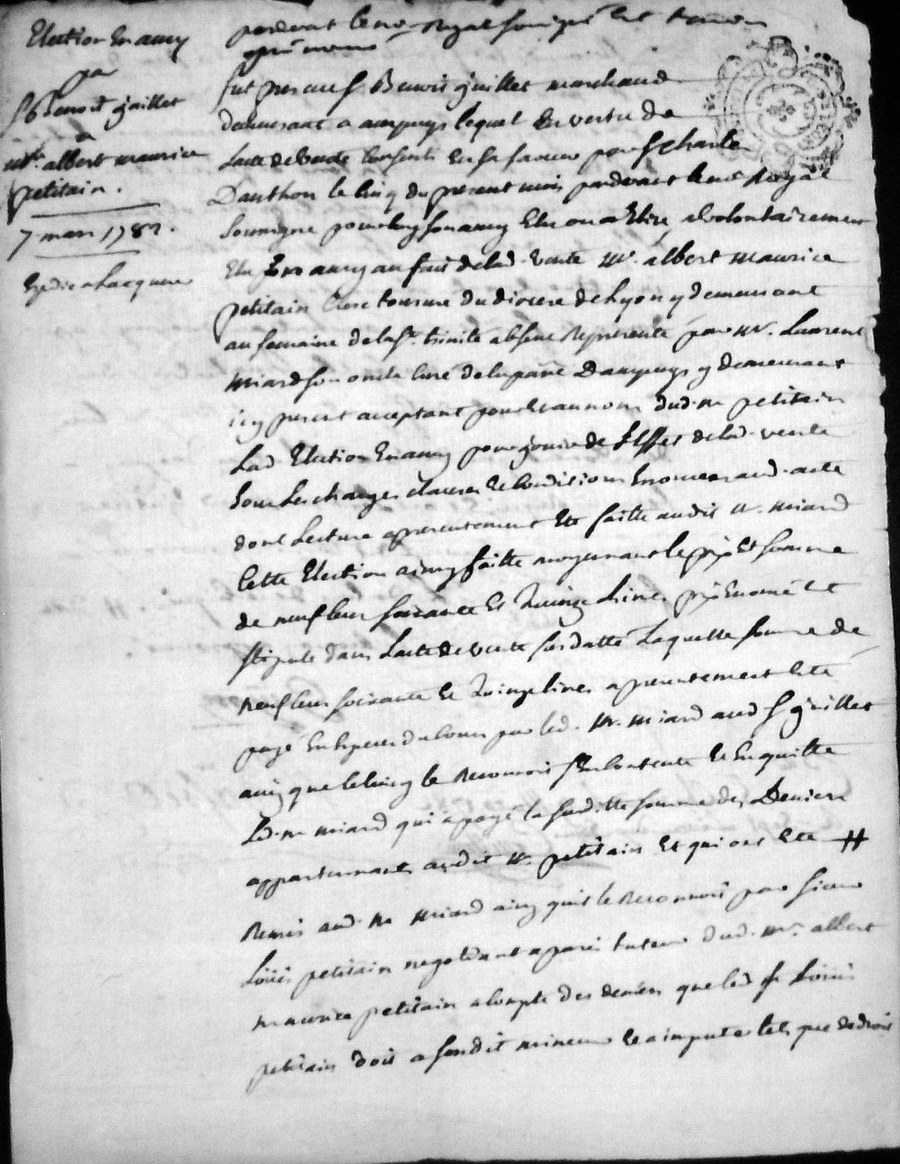 Election En amy
pa
S. Benoit guillet
a
Mre. albert maurice
petitain.
7 mars 1782.
Expédié a Lacquereur
pardevant le no.re Royal soussigné Et temoins
aprés nommés
fut present S. Benoit guillet marchand
demeurant a ampuys lequel En vertu de
Lacte de vente Consenti En sa faveur par S. Charle
Dauthon le cinq du present mois pardevant le no.re Royal
soussigné pour luy son amy Elu ou a Elire a volontairement
Elu Pour amy au fait de lad. vente Mr. albert maurice
petitain Clerc tonsuré du diocese de Lyon y demeurant
au seminaire de la ste. trinité absent Représenté par Mr. Laurent
miard son oncle curé de la parre. Dampuys y demeurant
icy present acceptant pour Et au nom dud. mr petitain
Lad. Election En amy pour jouir de L'effet de lad. vente
sous Les charges clauses Et Conditions Enoncées aud. acte
dont Lecture apresentement Eté faitte audit Mr. miard
Cette Election ainsy faitte moyennant le prix Et somme
de neuf Cent soixante Et Quinze Livres prix Enoncé Et
stipulé dans Lacte de vente susdatté Laquelle somme de
neuf Cent soixante Et Quinze livres a presentement Eté
payé En Especes du Cours par led. Mr. miard aud. S. guillet
ainsy que le le Reconnoit s'en Contente Et En quitte
Led. mr miard qui a payé la susditte somme des Deniers
appartenants audit Mr. petitain Et qui ont Eté #
Remis aud. Mr miard ainsy quil le Reconnoit par sieur
Loüis petitain negotiant a paris tuteur dud. Mr. albert
maurice petitain a Compte des deniers que led. Sr Loüis
petitain doit a sondit mineur Et a imputer tels que de droit